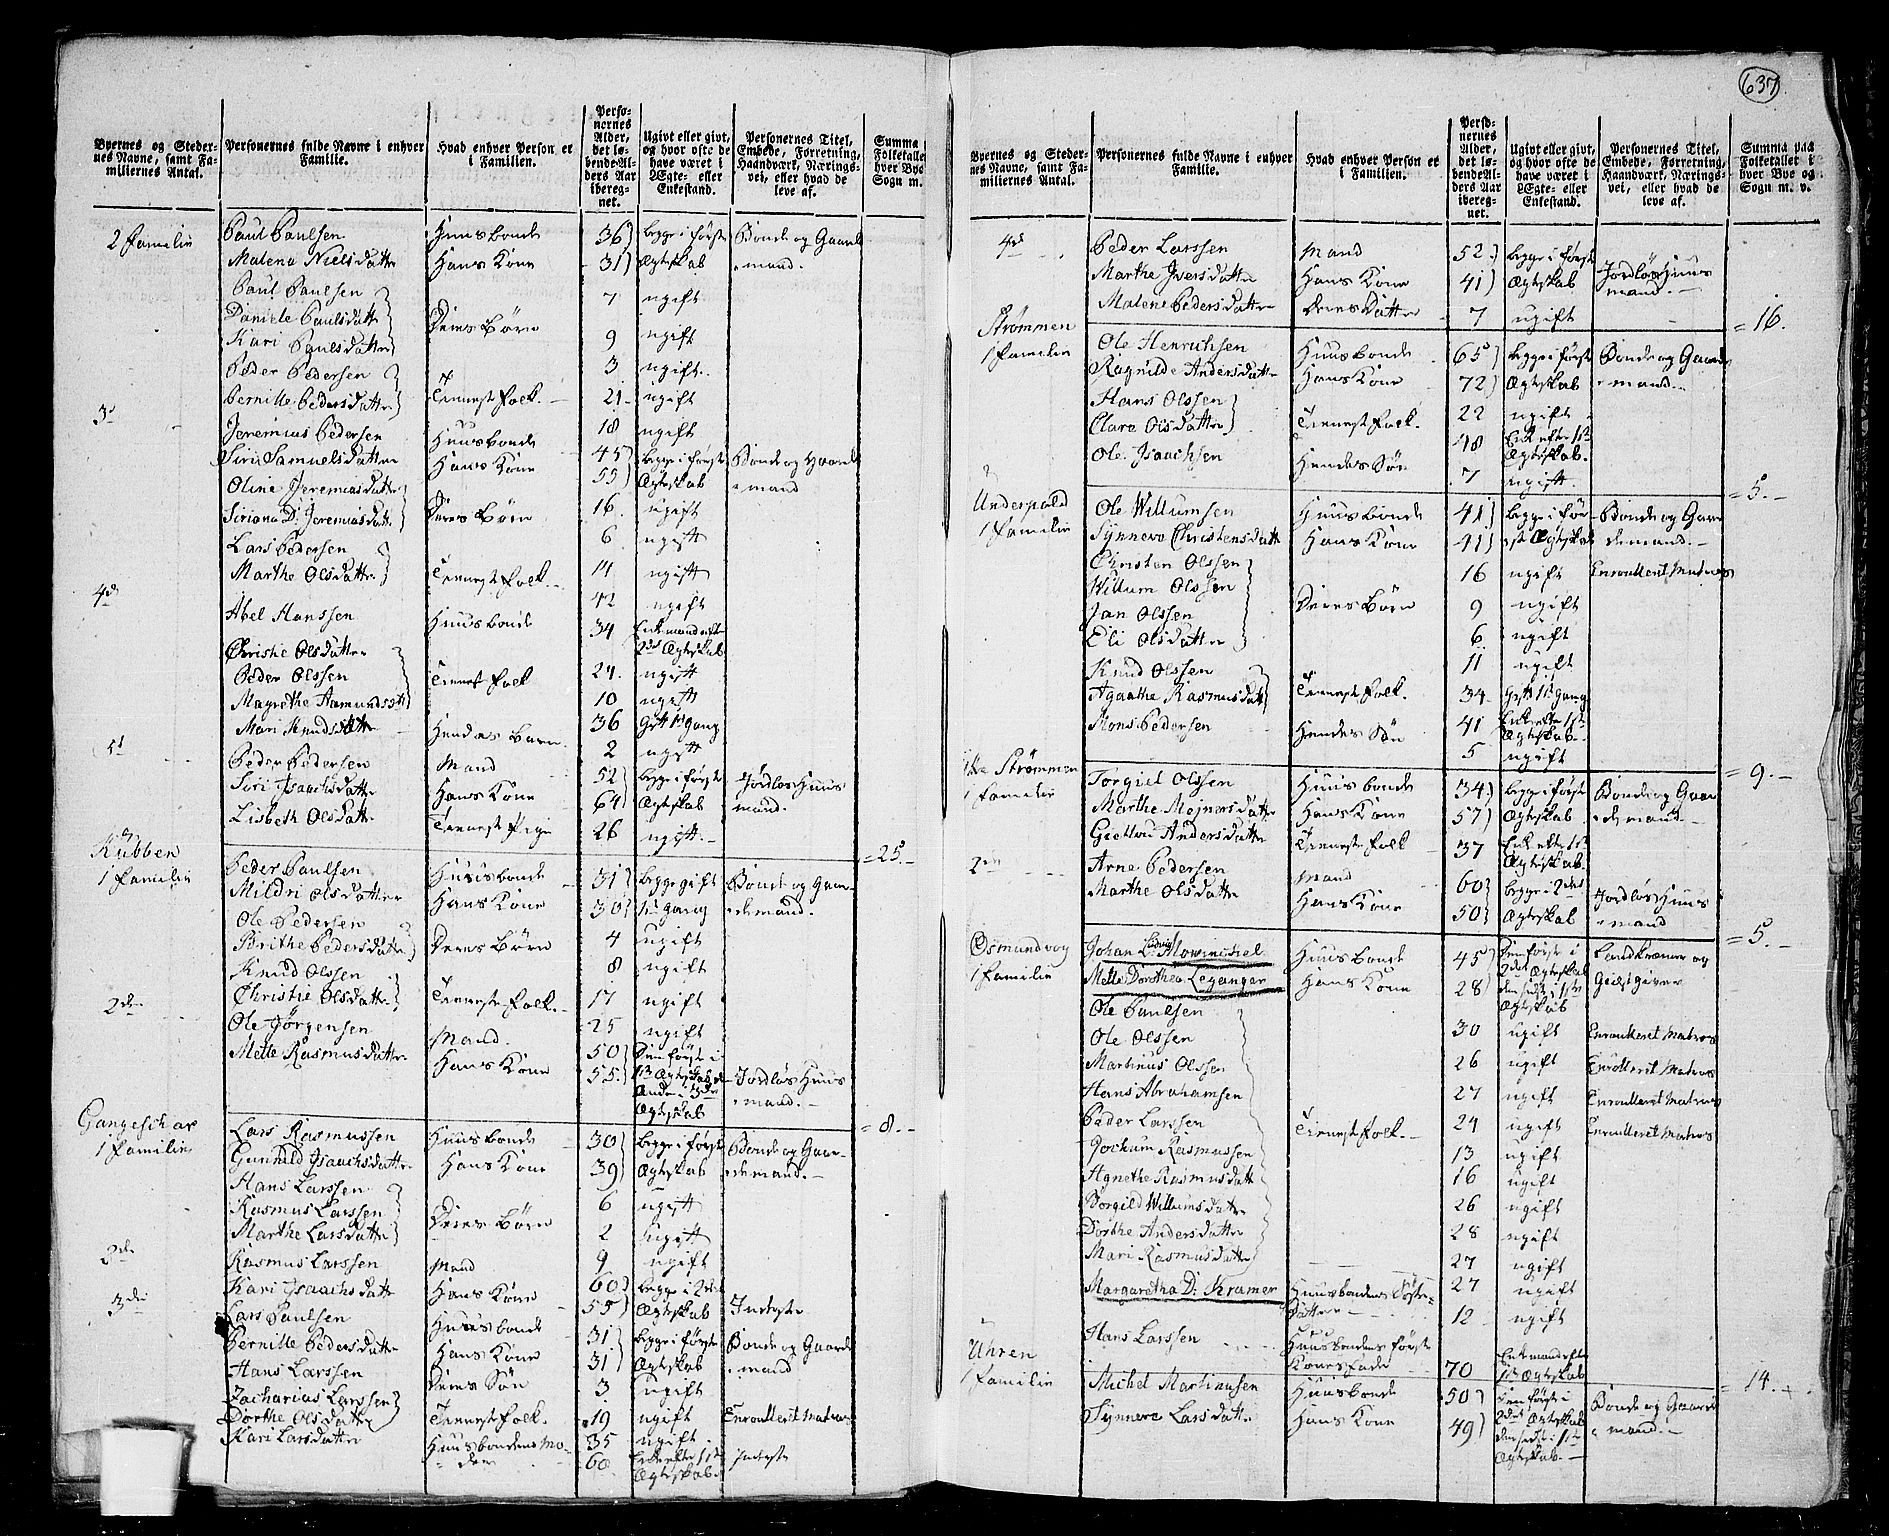 637
Byernes og Stedernes Navne, samt Familiernes Antal.
Personernes fulde Navne i enhver Familie.
Hvad enhver Person er i Familien.
Personernes Alder, det løbendeAlders Aar iberegnet.
Ugivt eller givt, og hvor ofte de have været i Egte- eller Enkestand.
Personernes Titel, Embede, Forretning, Haandværk, Nærings-vei, eller hvad de leve af.
Summa
Folketallet
hver Bye
Sogn m.
2 Familie Paul Paulsen Huusbonde 36 begge i første Bonde og Gaard
Malena Nielsdatter Hans Kone 31 Ægteskab mand.
Paul Paulsen 7 ugift
Daniele Paulsdatter Deres Børn 9 ugift
Kari Paulsdatter 3 ugift
Peder Pedersen 21 ugift
Pernille Pedersdatter Tienestfolk. 18 ugift
3d Jeremias Pedersen Huusbonde 45 begge i første Bonde og Gaard
Siri Samuelsdatter Hans Kone 55 Ægteskab mand
Oline Jeremiasdatter 16 ugift
Siriana D: Jeremiasdatt. Deres Børn 6 ugift
Lars Pedersen 14 ugift
Marthe Olsdatter Tienestfolk. 42 ugift
4de Abel Hanssen Huusbonde 34 Enkemand efter 2det Ægteskab
Christie Olsdatter 24 ugift
Peder Olssen Tienestfolk 10 ugift
Magrethe Aamundsdtt 36 Gift 1st Gang
Mari Knudsdatter Hendes Barn 2 ugift
5t Peder Pedersen Mand 52 begge i første Jordløs Huus
Siri Isaachsdatter Hans Kone 64 Ægteskab mand.
Lisbeth Olsdatter Tienestpige 26 ugift.
= 25. -
Kubben
1 Familie Peder Paulsen Huusbonde 31 begge gift Bonde og Gaar-
Mildri Olsdatter Hans Kone 30 1st Gang demand.
Ole Pedersen 4 ugift
Brithe Pedersdatter Deres Børn 8 ugift
Knud Olssen 17 ugift
Christie Olsdatter Tienestfolk. 25 ugift
2den Ole Jørgensen Mand. 50 Den første i
Mette Rasmusdatter Hans Kone 55. 1st Ægteskab, den Anden i 3die Ægteskab Jordløs Huus mand. -
= 8. -
Gangeschar
1 Familie Lars Rasmussen Huusbonde 30 begge i første Bonde og Gaar-
Gunnild Isaachsdatter Hans Kone 39 Ægteskab demand. -
Hans Larssen 6 ugift
Rasmus Larssen Deres Børn 2 ugift
Marthe Larsdatter 9 ugift
2de Rasmus Larssen Mand 60 begge i 2det
Kari Isaachsdatter Hans Kone 55 Ægteskab Inderste
3die Lars Paulsen Huusbonde 31 begge i første Bonde og Gaard
Pernille Pedersdatter Hans Kone 31 Ægteskab mand
Hans Larssen Deres Søn 3 ugift
Zacharias Larssen Tienestfolk. 19 ugift Enroulleret Matros
Dorthe Olsdatter 35 ugift.
Kari Larsdatter Huusbondens Moder 60 Enke efter 1ste Ægteskab. Inderste
Byernes og Stedernes Navne, samt Familiernes Antal.
Personernes fulde Navne i enhver Familie.
Hvad enhver Person er i Familien.
Personernes Alder, det løbendeAlders Aar iberegnet.
Ugivt eller givt, og hvor ofte de have været i Egte- eller Enkestand.
Personernes Titel, Embede, Forretning, Haandværk, Nærings-vei, eller hvad de leve af.
Summa paa Folketallet i hver Bye og Sogn m. v.
4de Peder Larssen Mand 52 begge i første Jordløs Huus
Marthe Iversdatter Hans Kone 41 Ægteskab mand. -
Malene Pedersdatter Deres Datter 7 ugift
= 16.
Strømmen
1 Familie Ole Henrichsen Huusbonde 65 begge i første Bonde og Gaard
Ragnilde Andersdatter Hans Kone 72 Ægteskab mand. -
Hans Olssen 22 ugift
Clara Olsdatter Tienestfolk. 48 Enke efter 1ste Ægteskab.
Ole Isaachsen Hendes Søn 7 ugift.
= 5. -
Underpald
1 Familie Ole Willumsen Huusbonde 41 begge i før- Bonde og Gaar
Synneva Christensdatt Hans Kone 41 st Ægteskab demand. -
Christen Olssen 16 ugift Enroulleret Matros
Willum Olssen 9 ugift
Jan Olssen Deres Børn 6 ugift
Eli Olsdatter 11 ugift
Knud Olssen 34 Gift 1st Gang
Agaathe Rasmusdatt Tienestfolk. 41 Enke efter 1ste Ægteskab.
Mons Pedersen Hendes Søn 5 ugift
= 9. -
Strømmen
1 Familie Torgiel Olssen Huusbonde 34 begge i første Bonde og Gaar
Marthe Mejnersdatter Hans Kone 57 Ægteskab demand. -
Giertrui Andersdatter Tienestfolk 37 Enke efter 1ste Ægteskab.
2den Arne Pedersen Mand 60 begge i 2det Jordløs Huus
Marthe Olsdatter Hans Kone 50 Ægteskab mand
= 5. -
Osmundvog
1 Familie Johan Ludvig Mowinchel Huusbonde 45 Den første i 2det Ægteskab Landkræmer og
Mette Dorothea Leganger Hans Kone 28 den sidste i 1ste Ægteskab Giestgiver
Ole Paulsen 30 ugift Enroulleret Matros
Ole Olssen 26 ugift Enroulleret Matros
Martinus Olssen 27 ugift Enroulleret Matros
Hans Abrahamsen 24 ugift Enroulleret Matros
Peder Larssen Tienestfolk. - 13 ugift
Jochum Rasmussen 16 ugift
Agnethe Rasmusdatt 26 ugift
Borgild Willumsdatter 28 ugift
Dorthe Andersdatter 27 ugift
Mari Rasmusdatter 27 ugift
Margaretha D: Kramer Huusbondens Søster-Datter 12 ugift
Hans Larssen Huusbondens første Kones Fader 70 Enkemand efter 1st Ægteskab
= 14. -
Uhren
1 Familie Michel Martinusen Huusbonde 50 Den første i 2det Ægteskab Bonde og Gaard
Synneva Larsdatter Hans Kone 49 den sidste i 1ste Ægteskab. - mand. -